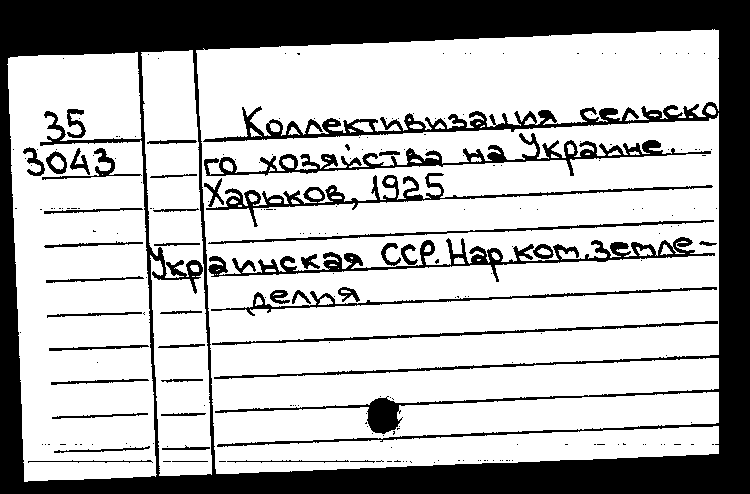 35
3043
Коллективизация сельско
го хозяйства на Украине.
Харьков, 1925.
Украинская ССР. Нар.ком.земле-
делия.